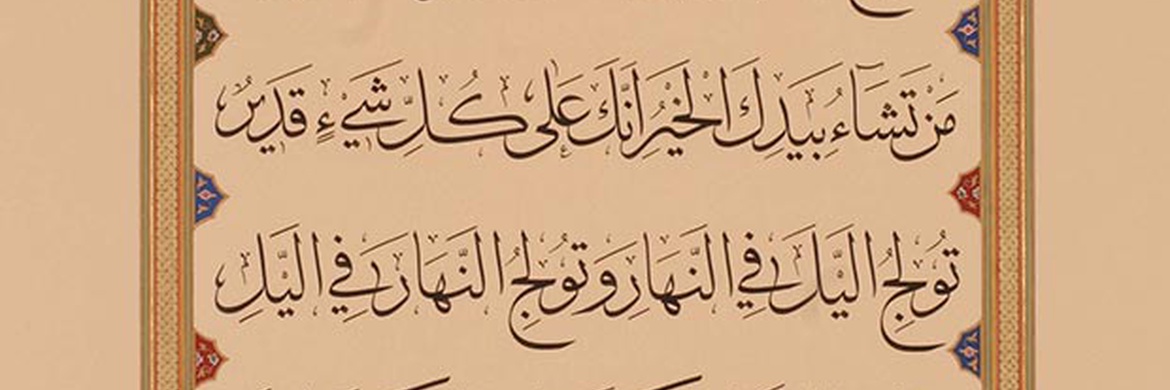 مَنْ تَشَاءُ بِيَدِكَ الْخَيْرُ اِنَّكَ عَلٰى كُلِّ شَيْءٍ قَدِيرٌ
تُولِجُ الَّيْلَ فِي النَّهَارِ وَتُولِجُ النَّهَارَ فِي الَّيْلِ